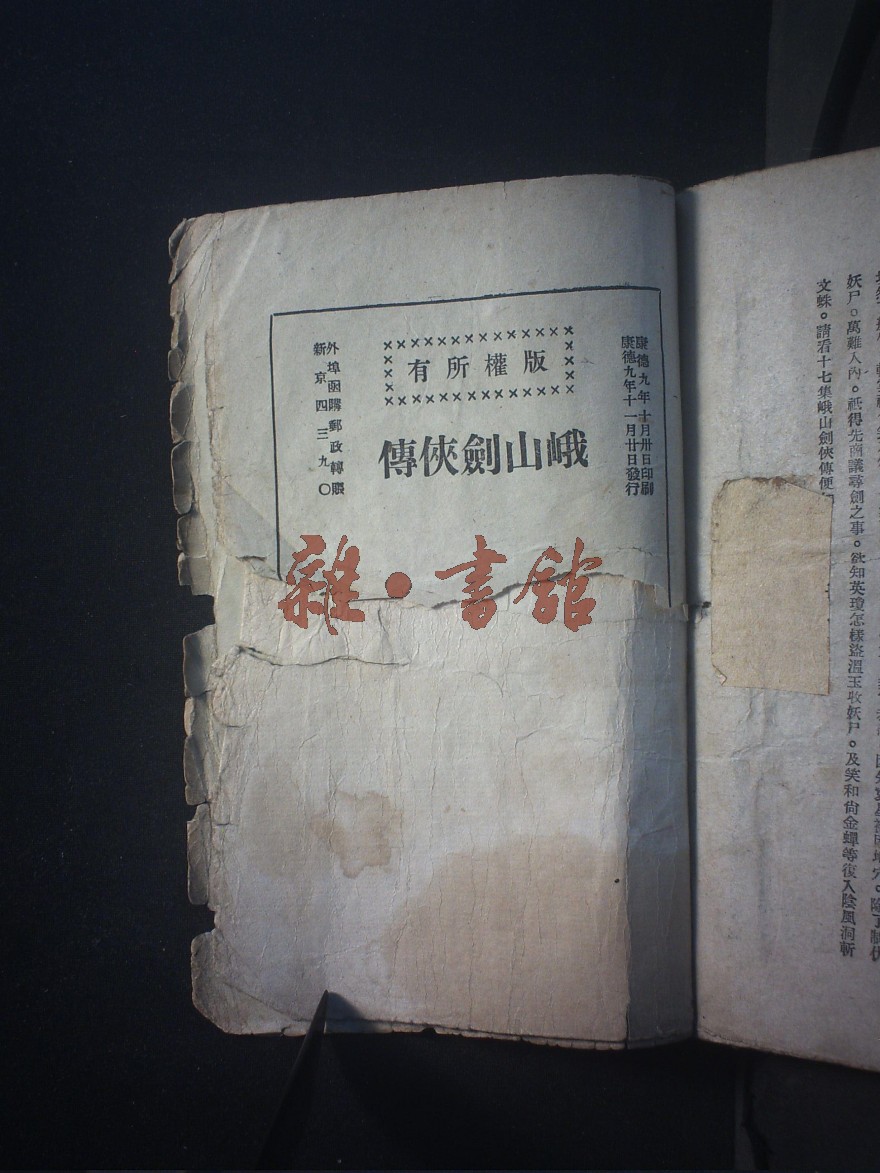 妖尸。萬難入內。祇得先商議尋劍之事。欲知英瓊怎樣盜溫玉收妖尸。及笑和尙金蟬等復入陰風洞斬
文蛛。請看十七集峨山劍俠傳便
康德九年十月卅日印刷
康德九年十一月廿日發行
版權所有
峨山劍俠傳
外埠函購郵政轉賬
新京四三九〇
雜·書館